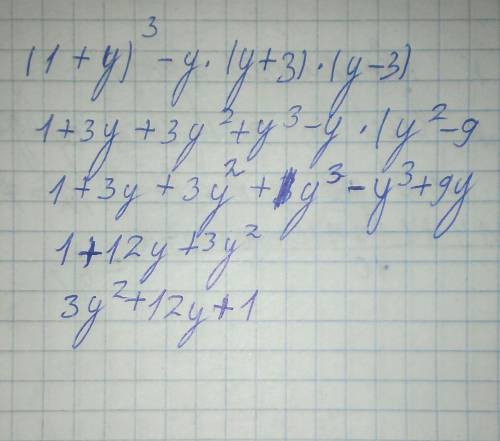 (1+y)³-y·(y+3)·(y-3)
1+3y+3y²+y³-y·(y²-9
1+3y+3y²+y³-y³+9y
1+12y+3y²
3y²+12y+1